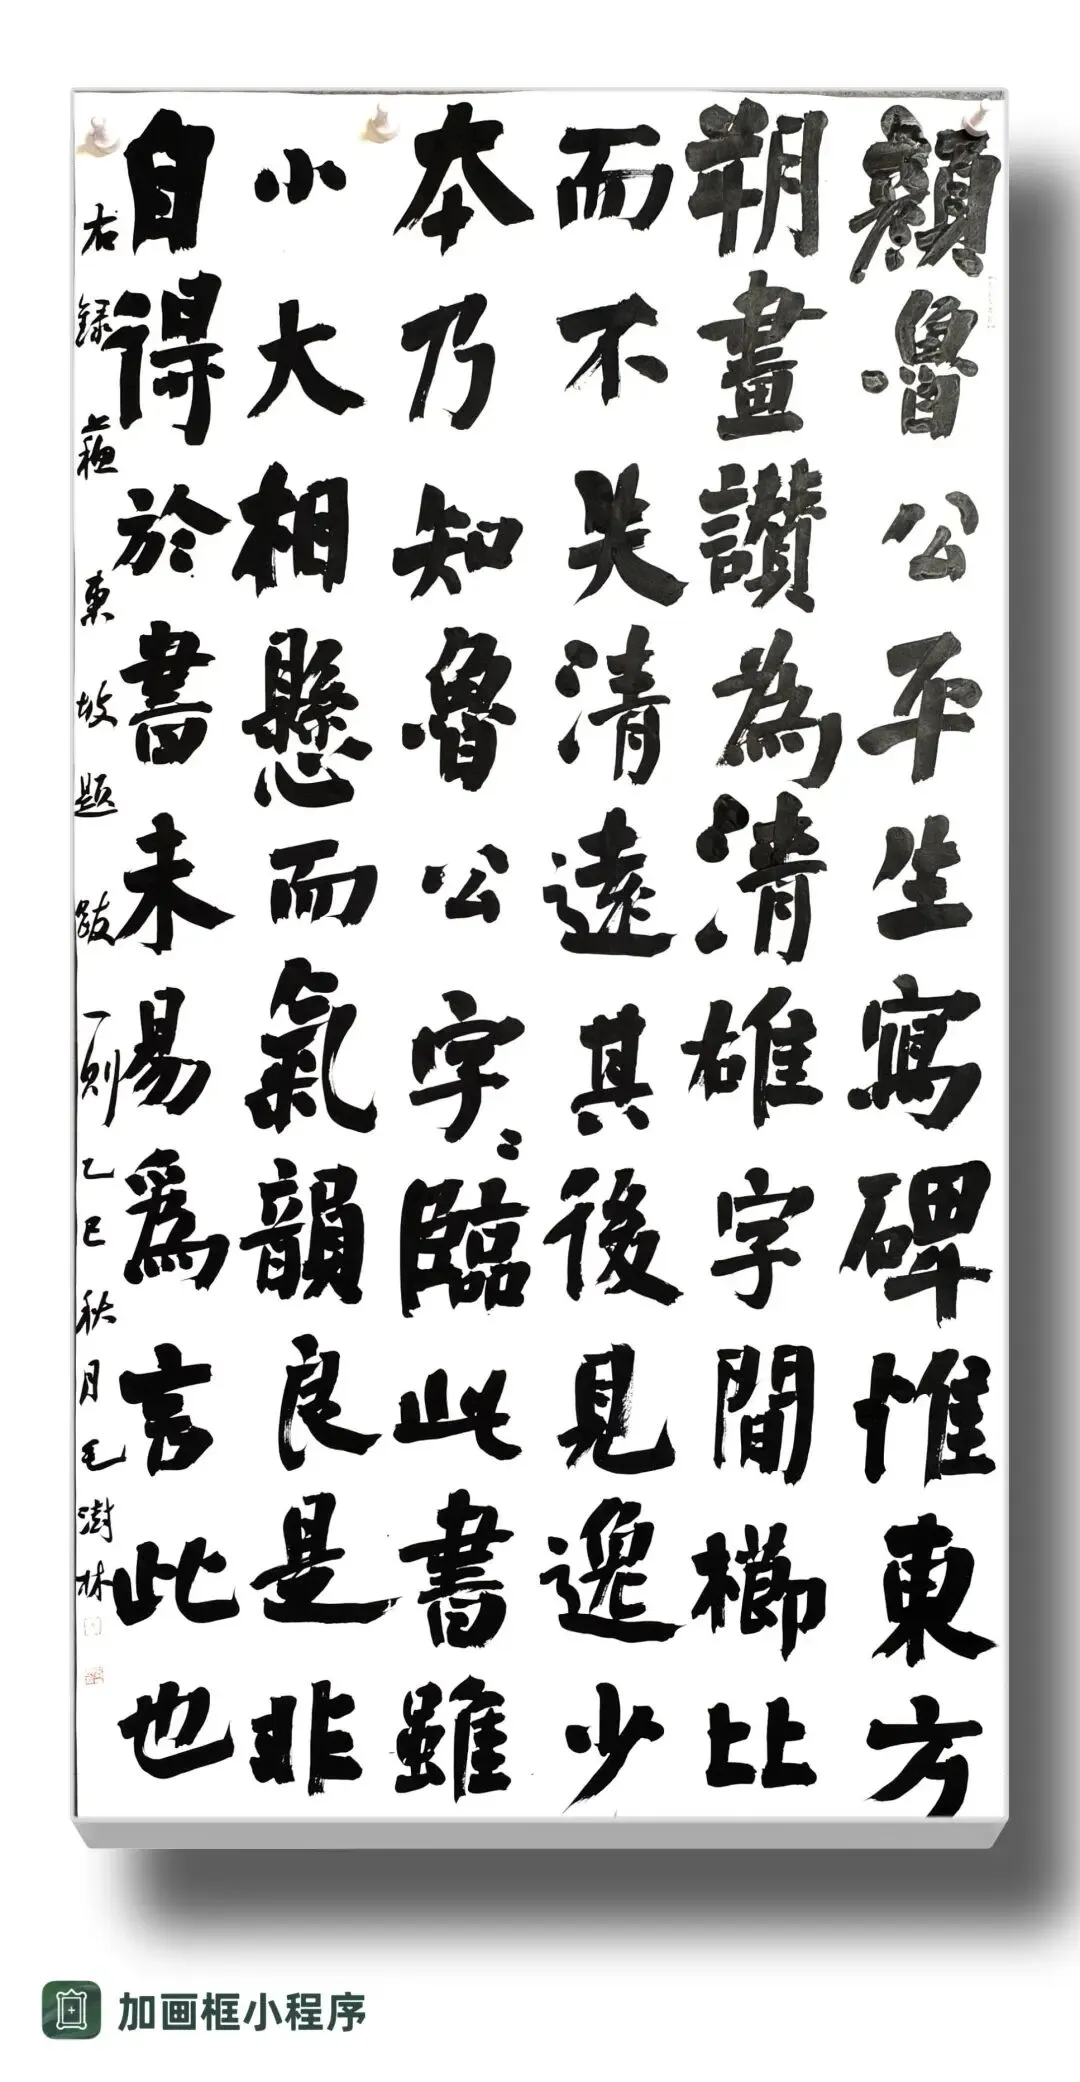 顏魯公平生寫碑惟東方
朔畫讚為清雄字間櫛比
而不失清遠其後見逸少
本乃知魯公字〻臨此書雖
小大相懸而氣韻良是非
自得於書未易爲言此也
右録蘓東坡题跋一则乙巳秋月毛澍林
加画框小程序